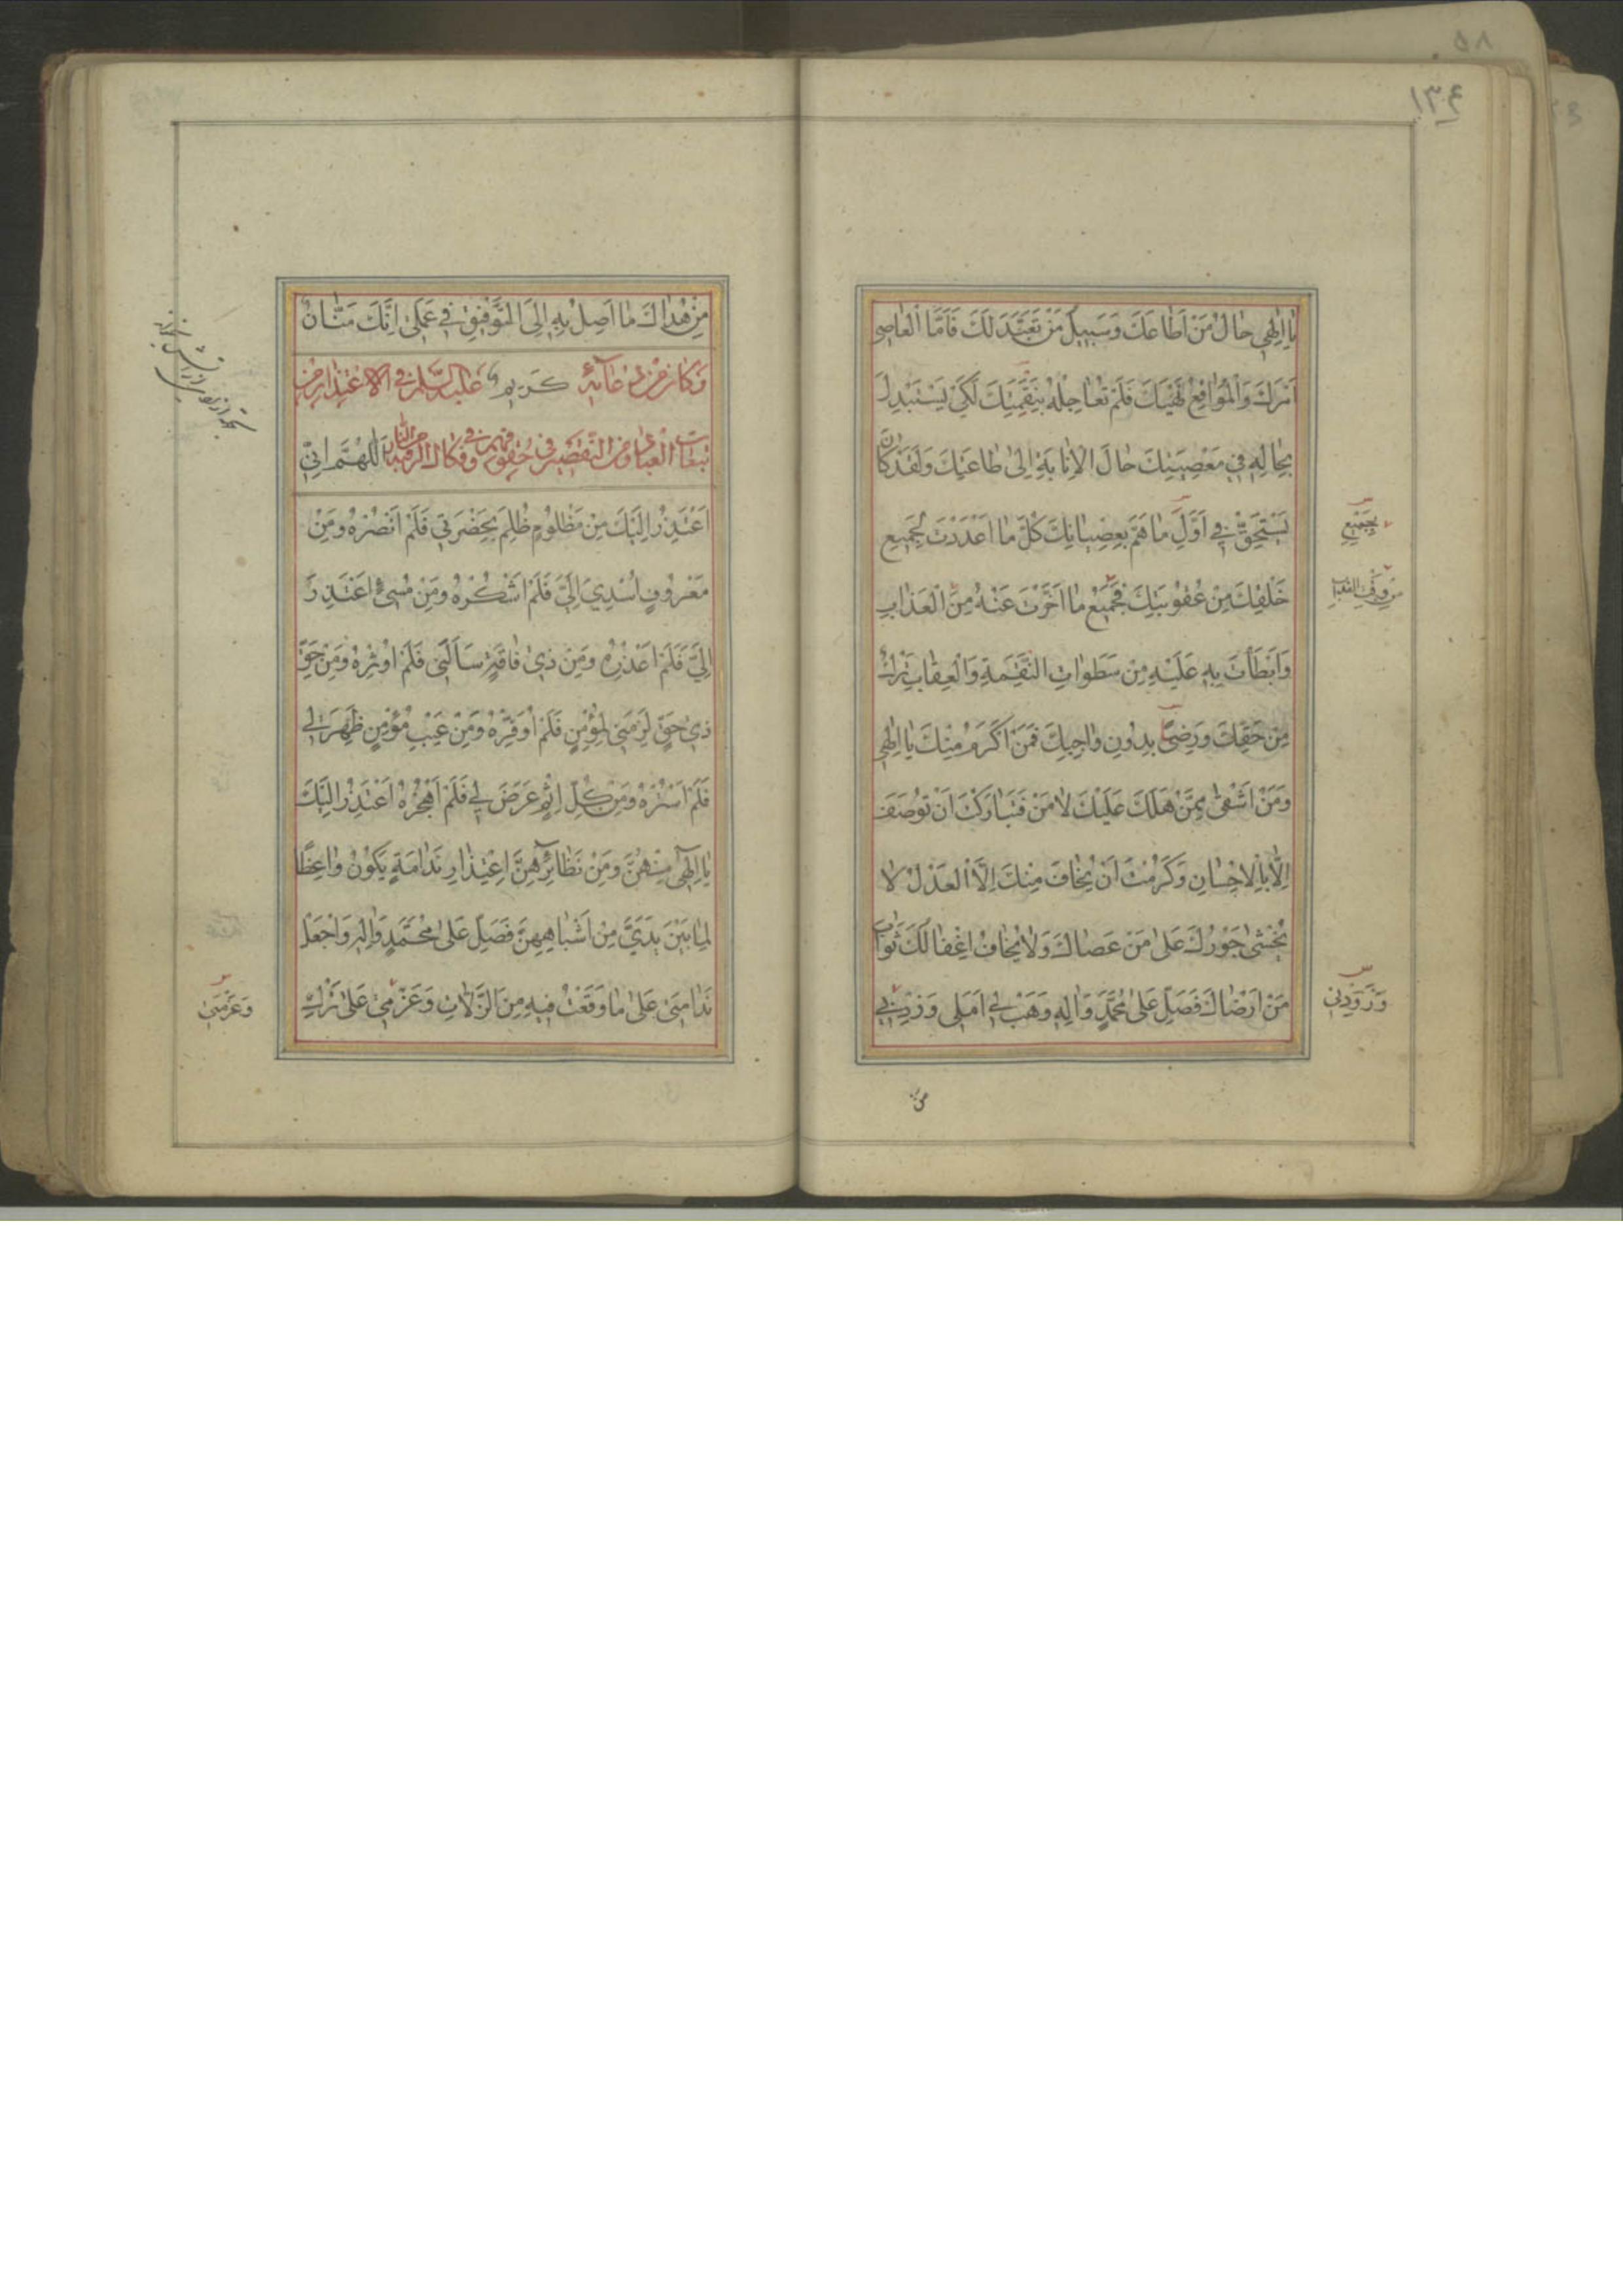 ١٣٤
يٰا اِلٰهي حٰالُ مَنْ اَطٰاعَكَ وَسَبيلُ مَنْ تَعَبَّدَ لَكَ فَاَمَّا الْعٰاصي
اَمْرَكَ وَالْمُوٰاقِعُ نَهْيَكَ فَلَمْ تُعٰاجِلْهُ بِنَقِمَتِكَ لِكَيْ يَسْتَبْدِلَ
بِحٰالِهِ في مَعْصِيَتِكَ حٰالَ الْاِنٰابَةِ اِلىٰ طٰاعَتِكَ وَلَقَدْ كٰانَ
يَسْتَحِقُّ في اَوَّلِ مٰا هَمَّ بِعِصْيٰانِكَ كُلَّ مٰا اَعْدَدْتَ لِجَميعِ
بِجَميعِ
خَلْقِكَ مِنْ عُقُوبَتِكَ فَجَميعُ مٰا اَخَّرْتَ عَنْهُ مِنَ الْعَذٰابِ
وَاَبْطَأْتَ بِهِ عَلَيْهِ مِنْ سَطَوٰاتِ النَّقِمَةِ وَالْعِقٰابِ تَرْكٌ
مِنْ حَقِّكَ وَرِضىً بِدُونِ وٰاجِبِكَ فَمَنْ اَكْرَمُ مِنْكَ يٰا اِلٰهي
وَمَنْ اَشْقىٰ مِمَّنْ هَلَكَ عَلَيْكَ لٰا مَنْ فَتَبٰارَكْتَ اَنْ تُوصَفَ
اِلّٰا بِالْاِحْسٰانِ وَكَرُمْتَ اَنْ يُخٰافَ مِنْكَ اِلَّا الْعَدْلُ لٰا
يُخْشىٰ جَوْرُكَ عَلىٰ مَنْ عَصٰاكَ وَلٰا يُخٰافُ اِغْفٰالُكَ ثَوٰابَ
مَنْ اَرْضٰاكَ فَصَلِّ عَلىٰ مُحَمَّدٍ وَاٰلِهِ وَهَبْ لي اَمَلي وَزِدْني
مِنْ
مِنْ هُدٰاكَ مٰا اَصِلُ بِهِ اِلَى التَّوْفيقِ في عَمَلي اِنَّكَ مَنّٰانٌ
كَريمٌ وَكٰانَ مِنْ دُعٰائِهِ عَلَيْهِ السَّلٰامُ فِي الْاِعْتِذٰارِ مِنْ
تَبِعٰاتِ الْعِبٰادِ وَمِنَ التَّقْصيرِ في حُقُوقِهِمْ وَفي فَكٰاكِ الرَّقَبَةِ مِنَ النّٰارِ اَللّٰهُمَّ اِنّي
اَعْتَذِرُ اِلَيْكَ مِنْ مَظْلُومٍ ظُلِمَ بِحَضْرَتي فَلَمْ اَنْصُرْهُ وَمِنْ
مَعْرُوفٍ اُسْدِيَ اِلَيَّ فَلَمْ اَشْكُرْهُ وَمِنْ مُسيءٍ اعْتَذَرَ
اِلَيَّ فَلَمْ اَعْذِرْهُ وَمِنْ ذي فٰاقَةٍ سَاَلَني فَلَمْ اُوثِرْهُ وَمِنْ حَقِّ
ذي حَقٍّ لَزِمَني لِمُؤْمِنٍ فَلَمْ اُوَفِّرْهُ وَمِنْ عَيْبِ مُؤْمِنٍ ظَهَرَ لي
فَلَمْ اَسْتُرْهُ وَمِنْ كُلِّ اِثْمٍ عَرَضَ لي فَلَمْ اَهْجُرْهُ اَعْتَذِرُ اِلَيْكَ
يٰا اِلٰهي مِنْهُنَّ وَمِنْ نَظٰائِرِهِنَّ اِعْتِذٰارَ نَدٰامَةٍ يَكُونُ وٰاعِظًا
لِمٰا بَيْنَ يَدَيَّ مِنْ اَشْبٰاهِهِنَّ فَصَلِّ عَلىٰ مُحَمَّدٍ وَاٰلِهِ وَاجْعَلْ
نَدٰامَتي عَلىٰ مٰا وَقَعْتُ فيهِ مِنَ الزَّلّٰاتِ وَعَزْمي عَلىٰ تَرْكِ